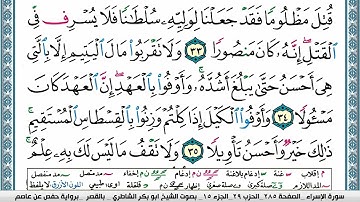 قُتِلَ مَظْلُومًا فَقَدْ جَعَلْنَا لِوَلِيِّهِۦ سُلْطَٰنًا فَلَا يُسْرِف فِّي
ٱلْقَتْلِ ۖ إِنَّهُۥ كَانَ مَنصُورًا ٣٣ وَلَا تَقْرَبُوا۟ مَالَ ٱلْيَتِيمِ إِلَّا بِٱلَّتِي
هِيَ أَحْسَنُ حَتَّىٰ يَبْلُغَ أَشُدَّهُۥ ۚ وَأَوْفُوا۟ بِٱلْعَهْدِ ۖ إِنَّ ٱلْعَهْدَ كَانَ
مَسْـُٔولًا ٣٤ وَأَوْفُوا۟ ٱلْكَيْلَ إِذَا كِلْتُمْ وَزِنُوا۟ بِٱلْقِسْطَاسِ ٱلْمُسْتَقِيمِ ۚ
ذَٰلِكَ خَيْرٌ وَأَحْسَنُ تَأْوِيلًا ٣٥ وَلَا تَقْفُ مَا لَيْسَ لَكَ بِهِۦ عِلْمٌ ۚ
سورة الإسراء - الصفحة ٢٨٥ - الحزب ٢٩ - الجزء ١٥ - بصوت الشيخ أبو بكر الشاطري - بالقصر - رواية حفص عن عاصم